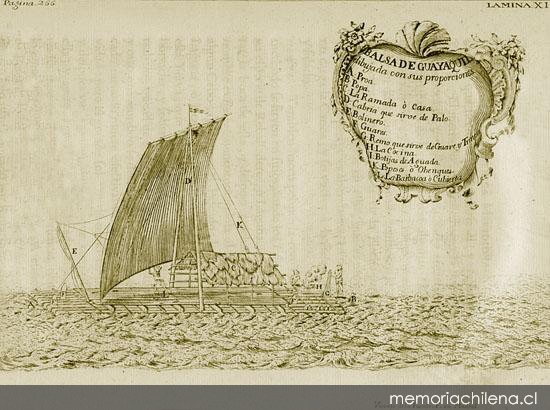 Pagina. 266
LAMINA XI
BALSA DE GUAYAQUIL
dibujada con sus proporciones
A. Proa.
B. Popa.
C. La Ramada ò Casa.
D. Cabria que sirve de Palo.
E. Bolinero.
F. Guares.
G. Remo que sirve de Guare, y Timon
H. La Cocina.
I. Botijas de Aguada.
K. Popeses ò Obenques
L. La Barbacoa ò Cubierta
D
E
K
I
H
G
B
memoriachilena.cl